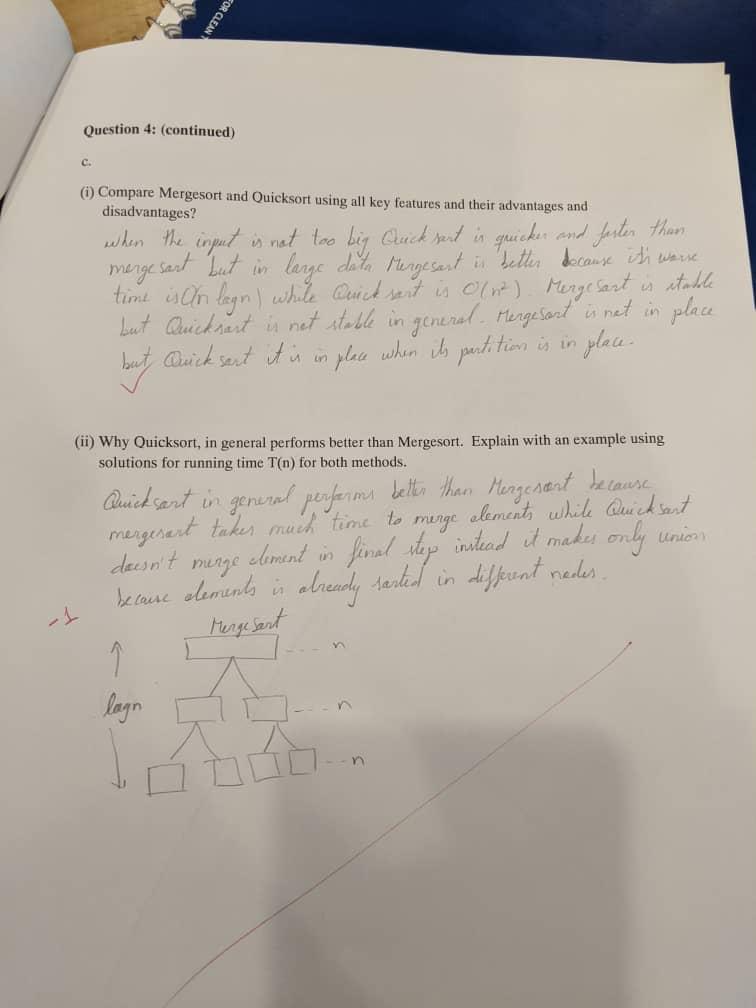 FOR CLEAN
Question 4: (continued)
c.
(i) Compare Mergesort and Quicksort using all key features and their advantages and
disadvantages?
when the input is not too big Quick sort is quicker and faster than
merge sort but in large data Mergesort is better because it's worse
time is O(n logn) while Quick sort is O(n²). Merge Sort is stable
but Quicksort is not stable in general. MergeSort is not in place
but Quick sort it is in place when its partition is in place.
(ii) Why Quicksort, in general performs better than Mergesort. Explain with an example using
solutions for running time T(n) for both methods.
Quicksort in general performs better than Mergesort because
mergesort takes much time to merge elements while Quicksort
doesn't merge element in final step instead it makes only union
because elements is already sorted in different nodes.
-1
Merge Sort
n
logn
n
n